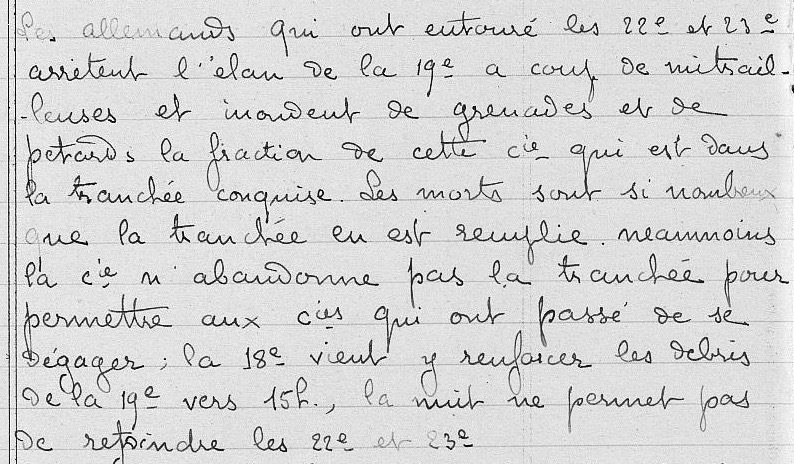 Les allemands qui ont entouré les 22e et 23e
arrêtent l'élan de la 19e a coup de mitrail-
-leuses et inondent de grenades et de
petards la fraction de cette cie qui est dans
la tranchée conquise. Les morts sont si nombreux
que la tranchée en est remplie. neammoins
la cie n'abandonne pas la tranchée pour
permettre aux cies qui ont passé de se
dégager ; la 18e vient y renforcer les debris
de la 19e vers 15h., la nuit ne permet pas
de rejoindre les 22e et 23e